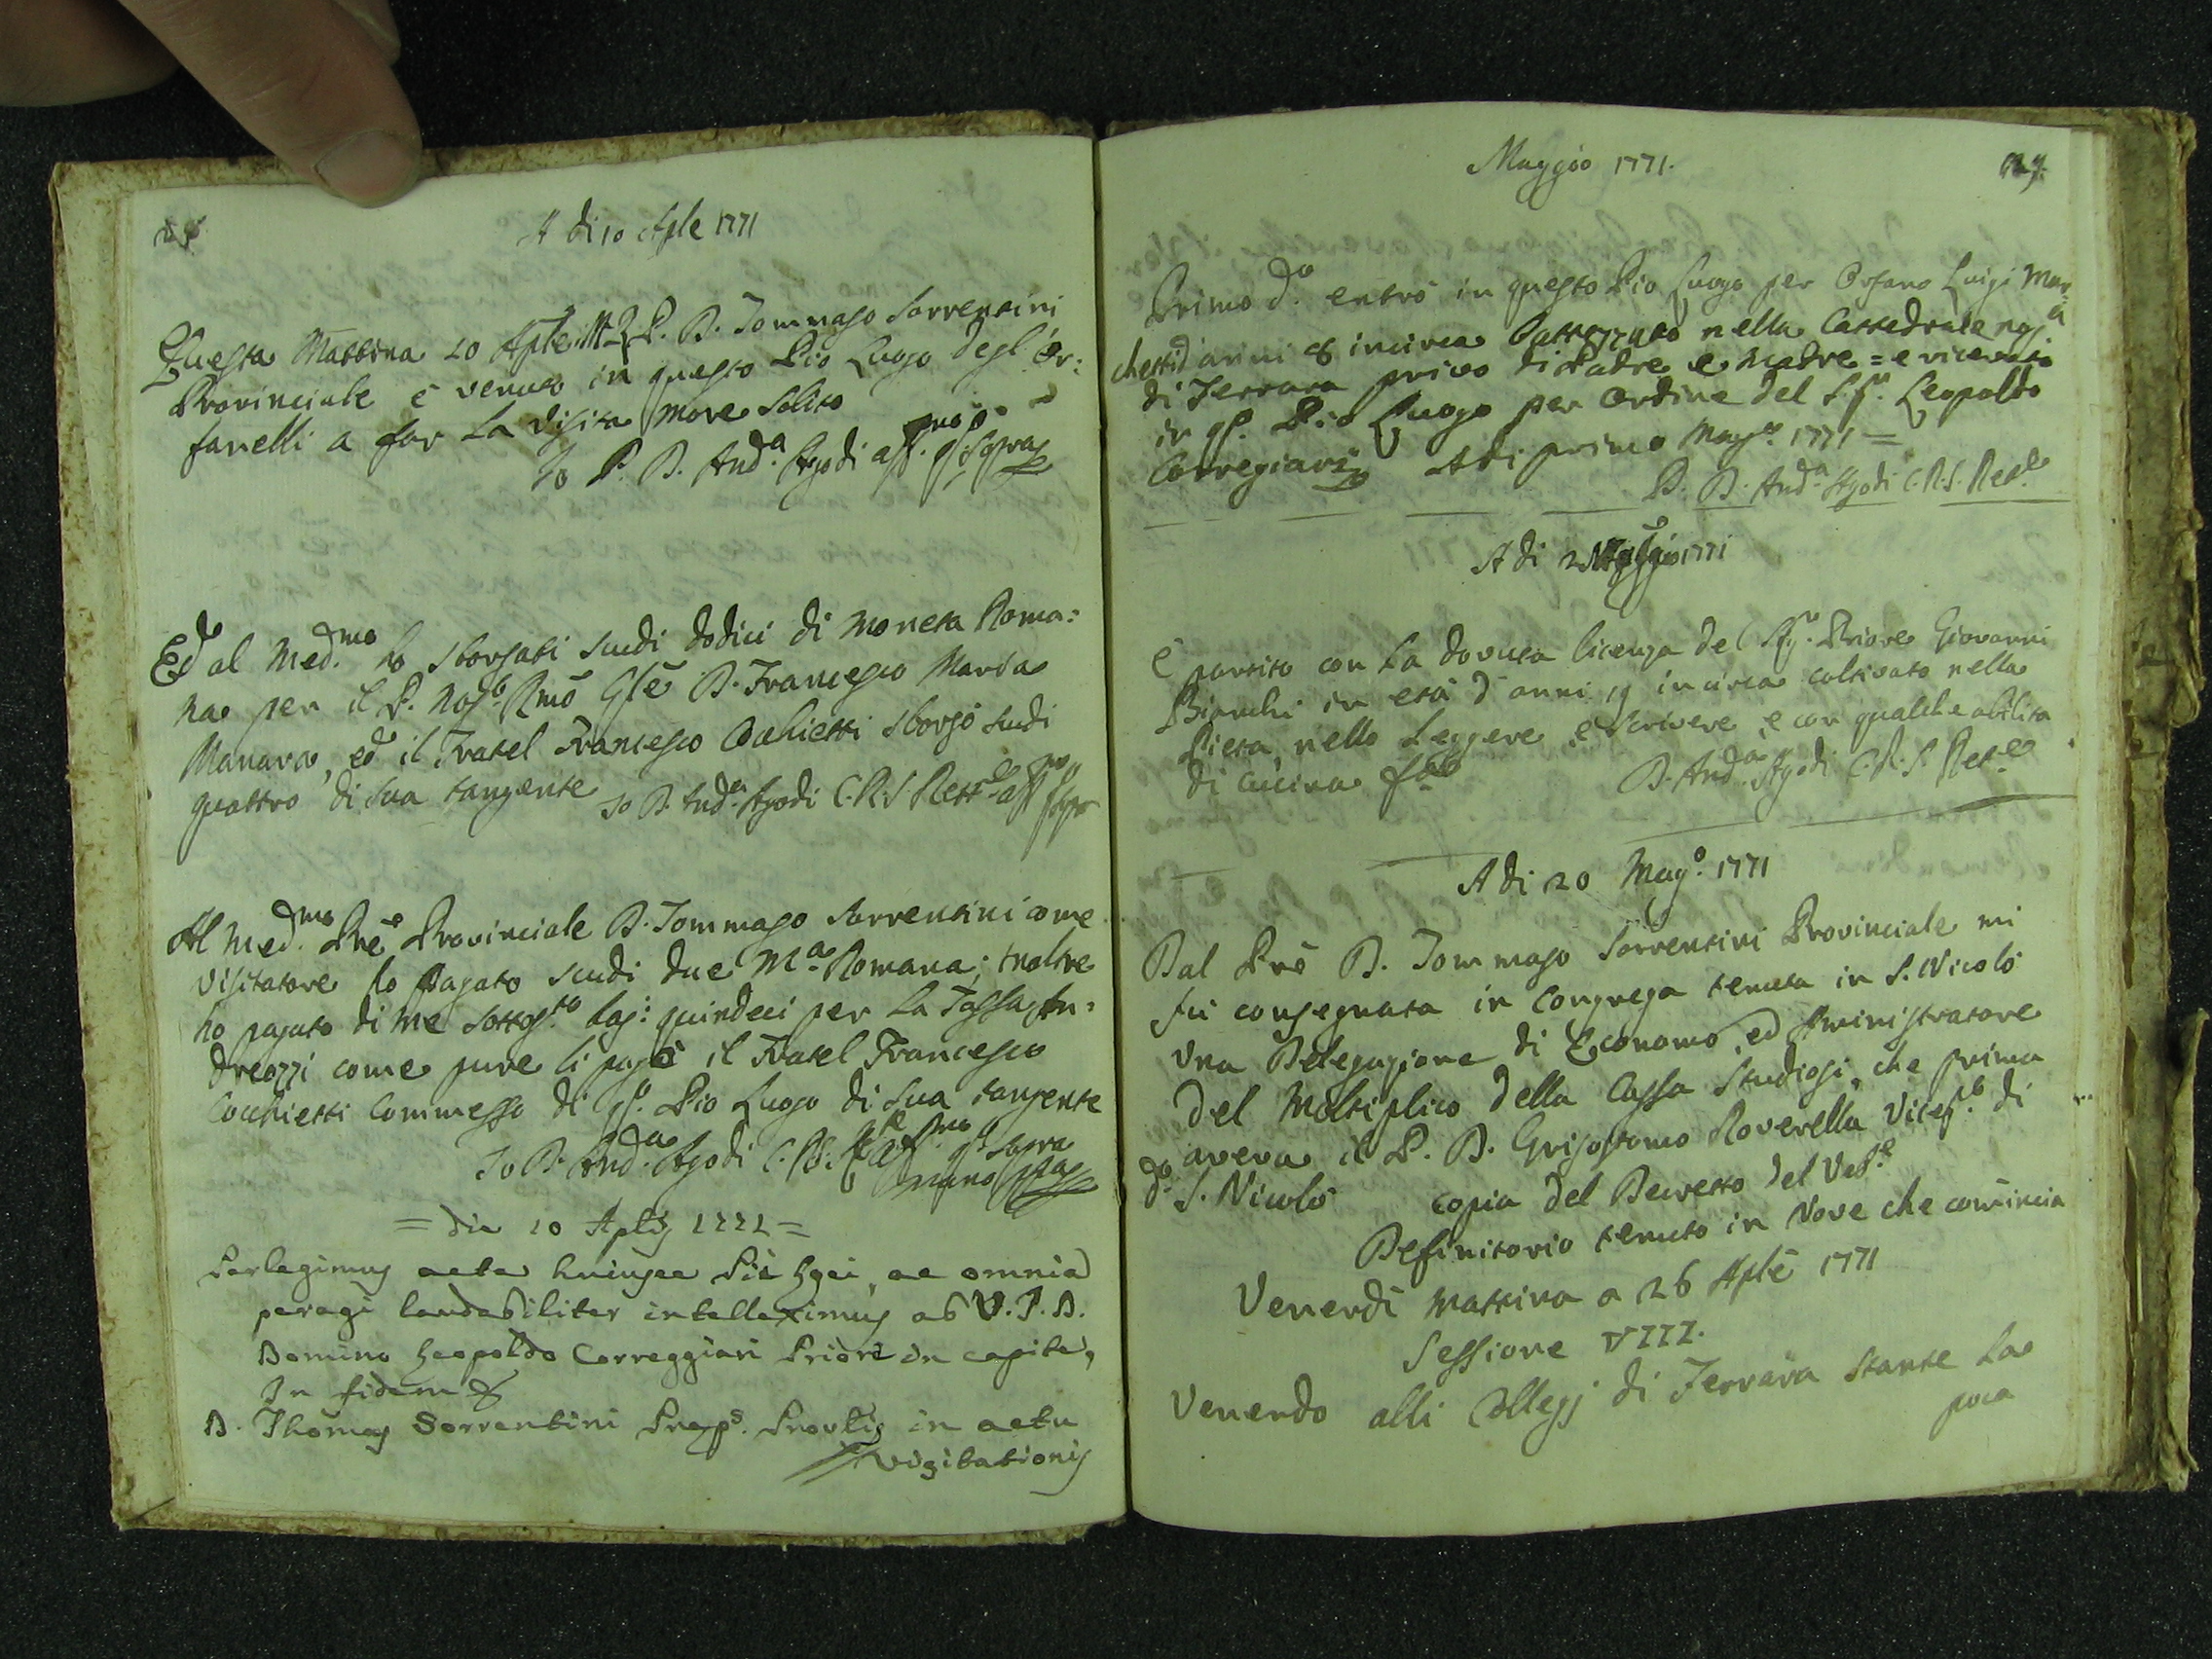 A di 10 Aple 1771
Questa Mattina 10 Aple il M. R. P. D. Tommaso Sorrentini
Provinciale è venuto in questo Pio Luogo degl'Or:
fanelli a far La Visita more solito
Io P. D. And.a Agodi aff.mo qto sopra
Ed al Med.mo ho sborsati scudi dodici di moneta Roma:
na per il P. Nos.o Rmo Gle D. Francesco Maria
Manara, ed il Fratel Francesco Cochietti sborsò scudi
quattro di sua tangente
Io D. And.a Agodi C.R.S. Rett.e aff.mo
Al Med.mo Pre Provinciale D. Tommaso Sorrentini come
Visitatore ho pagato scudi due M.a Romana; inoltre
ho pagato di me sottos.to baj: quindeci per La Tassa An:
dreozzi come pure li pagò il Fratel Francesco
Cochietti Commesso di qs. Pio Luogo di sua tangente
Io D. And.a Agodi C.R.S. aff.mo q.to sopra
mano ppa
= die 10 Aplis 1771 =
Perlegimus acta huiusce Pii Loci, ac omnia
peragi laudabiliter intelleximus ab V. J. D.
Domino Leopoldo Correggiari Priori in capite,
In fidem &
D. Thomas Sorrentini Preps. Provlis in actu
visitationis
Maggio 1771.
29.
Primo d.o entrò in questo Pio Luogo per Orfano Luigi Mar
chetti d'anni 8 incirca Battezzato nella Cattedrale
di Ferrara privo di Padre e Madre = e ricevuto
in qs. Pio Luogo per Ordine del S.r Leopoldo
Corregiari Adi primo Mag.o 1771 =
D. D. And.a Agodi C.R.S. Ret.e
A di 2 Maggio 1771
È partito con La dovuta licenza del Sig.r Priore Giovanni
Bianchi in età d'anni 19 incirca coltivato nella
Pietà, nello Leggere, e scrivere, e con qualche abilita
di cucina
D. And.a Agodi C.R.S. Ret.e
A di 20 Mag.o 1771
Dal Pre D. Tommaso Sorrentini Provinciale mi
fù consegnata in Congrega tenuta in S. Nicolò
Una Delegazione di Economo, ed Aministratore
del Moltiplico della Cassa Studiosi, che prima
aveva il P. D. Grisostomo Roverella Vicep.to di
d.o S. Nicolò copia del Decreto del Veb.le
Definitorio tenuto in Nove che comincia
Venerdì Mattina a 26 Aple 1771
Sessione VIII.
Venendo alli Collegj di Ferrara stante La
poca